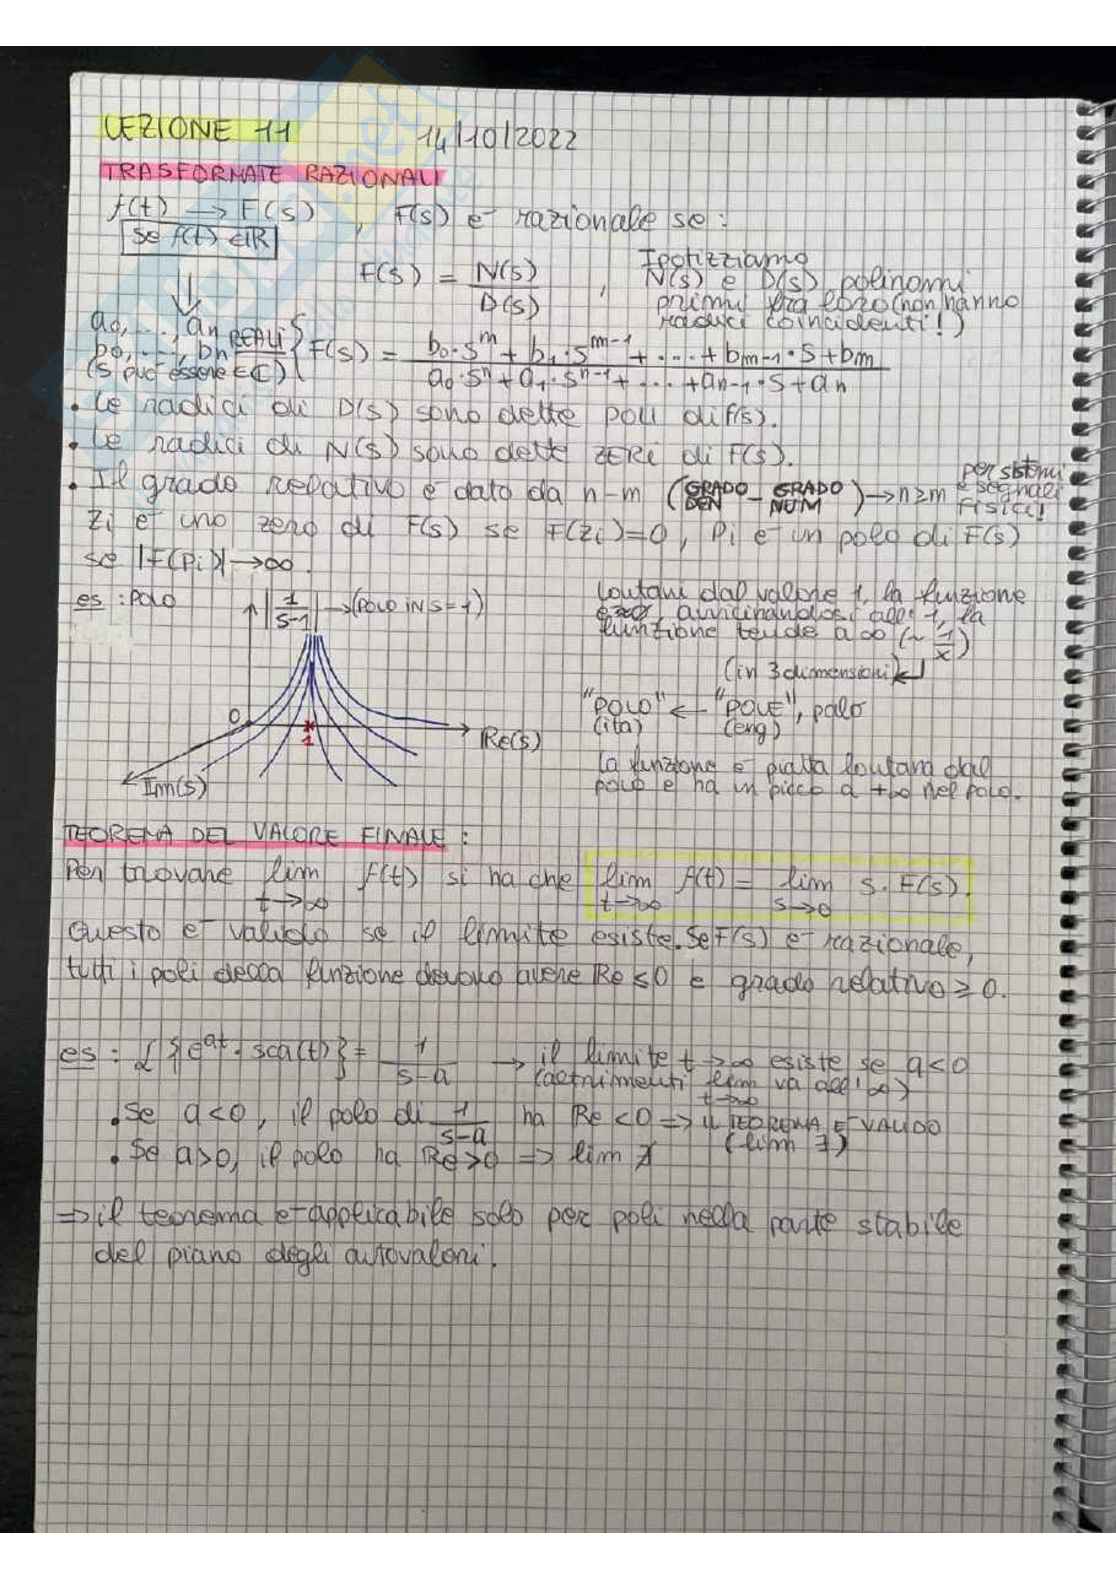 LEZIONE 11 14/10/2022
TRASFORMATE RAZIONALI
f(t) → F(s) , F(s) è razionale se:
se f(t) ∈ IR
F(s) = N(s)/D(s) , Ipotizziamo
N(s) e D(s) polinomi
primi fra loro (non hanno
radici coincidenti!)
a0, ..., an REALI
b0, ..., bn
(s può essere ∈ C)
F(s) = (b0·s^m + b1·s^(m-1) + ... + bm-1·s + bm)/(a0·s^n + a1·s^(n-1) + ... + an-1·s + an)
• Le radici di D(s) sono dette POLI di F(s).
• Le radici di N(s) sono dette ZERI di F(s).
• Il grado relativo è dato da n-m (GRADO DEN - GRADO NUM) → n≥m per sistemi e segnali FISICI!
Zi è uno zero di F(s) se F(zi)=0, Pi è un polo di F(s)
se |F(Pi)| → ∞.
es: POLO |1/(s-1)| → (POLO IN S=1)
0
1
Re(s)
Im(s)
Lontani dal valore 1, la funzione
avvicinandosi all' 1, la
funzione tende a ∞ (~ 1/x)
(in 3 dimensioni)
"POLO" ← "POLE", palo
(ita) (eng)
La funzione è piatta lontana dal
polo e ha un picco a +∞ nel polo.
TEOREMA DEL VALORE FINALE:
Per trovare lim t→∞ f(t) si ha che lim t→∞ f(t) = lim s→0 s·F(s).
Questo è valido se il limite esiste. Se F(s) è razionale,
tutti i poli della funzione devono avere Re ≤ 0 e grado relativo ≥ 0.
es: L{e^at · sca(t)} = 1/(s-a) → il limite t→∞ esiste se a<0
(altrimenti lim t→∞ va all'∞)
• Se a<0, il polo di 1/(s-a) ha Re<0 ⇒ IL TEOREMA È VALIDO
(lim ∃)
• Se a>0, il polo ha Re>0 ⇒ lim ∄
⇒ il teorema è applicabile solo per poli nella parte stabile
del piano degli autovalori.